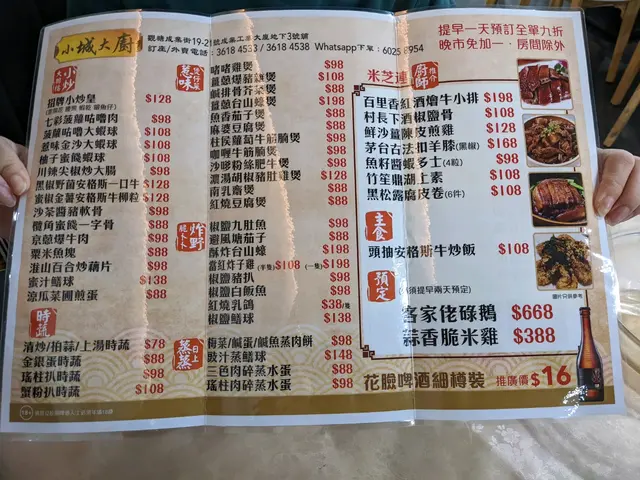 小城大廚
觀塘成業街19-21號成業工業大廈地下3號舖
訂座/外賣電話：3618 4533 / 3618 4538 Whatsapp下單：6025 8954
提早一天預訂全單九折
晚市免加一．房間除外
小炒
招牌小炒皇 $128
七彩菠蘿咕嚕肉 $98
菠蘿咕嚕大蝦球 $108
蔥味金沙大蝦球 $108
柚子蜜餞蝦球 $108
川辣尖椒炒大腸 $98
黑椒野菌安格斯一口牛 $128
蜜椒金薯安格斯牛柳粒 $128
沙茶醬豬軟骨 $98
欖角蜜餞一字骨 $98
京蔥爆牛肉 $98
粟米魚塊 $88
淮山百合炒藕片 $98
蜜汁鱔球 $138
涼瓜菜圃煎蛋 $88
時蔬
清炒/拍蒜/上湯時蔬 $78
金銀蛋時蔬 $88
瑤柱扒時蔬 $98
蟹粉扒時蔬 $108
惹味
啫啫雞煲 $98
薑蔥爆豬膶煲 $108
鹹排骨芥菜煲 $98
薑蔥台山蠔 $198
魚香茄子煲 $98
麻婆豆腐煲 $98
柱侯蘿蔔牛筋腩煲 $98
咖喱牛筋腩煲 $98
沙嗲粉絲肥牛煲 $98
濃湯胡椒豬肚雞煲 $128
南乳齋煲 $88
紅燒豆腐煲 $88
炸野
椒鹽九肚魚 $98
避風塘茄子 $88
酥炸台山蠔 $198
富紅炸子雞(半隻) $108 (一隻) $198
椒鹽豬扒 $98
椒鹽白飯魚 $98
紅燒乳鴿 $38/隻
椒鹽鱔球 $138
蒸蒸日上
梅菜/鹹蛋/鹹魚蒸肉餅 $98
豉汁蒸鱔球 $148
三色肉碎蒸水蛋 $88
瑤柱肉碎蒸水蛋 $98
米芝連
廚師
百里香紅酒燴牛小排 $198
村長下酒椒鹽骨 $108
鮮沙薑陳皮煎雞 $128
茅台古法扣羊膝(黑椒) $168
魚籽醬蝦多士(4粒) $98
竹笙鼎湖上素 $108
黑松露腐皮卷(6件) $108
主食
頭抽安格斯牛炒飯 $108
預定
(必須提早兩天預定)
客家佬碌鵝 $668
蒜香脆米雞 $388
圖片只供參考
花臉啤酒細樽裝 推廣價 $16
18+